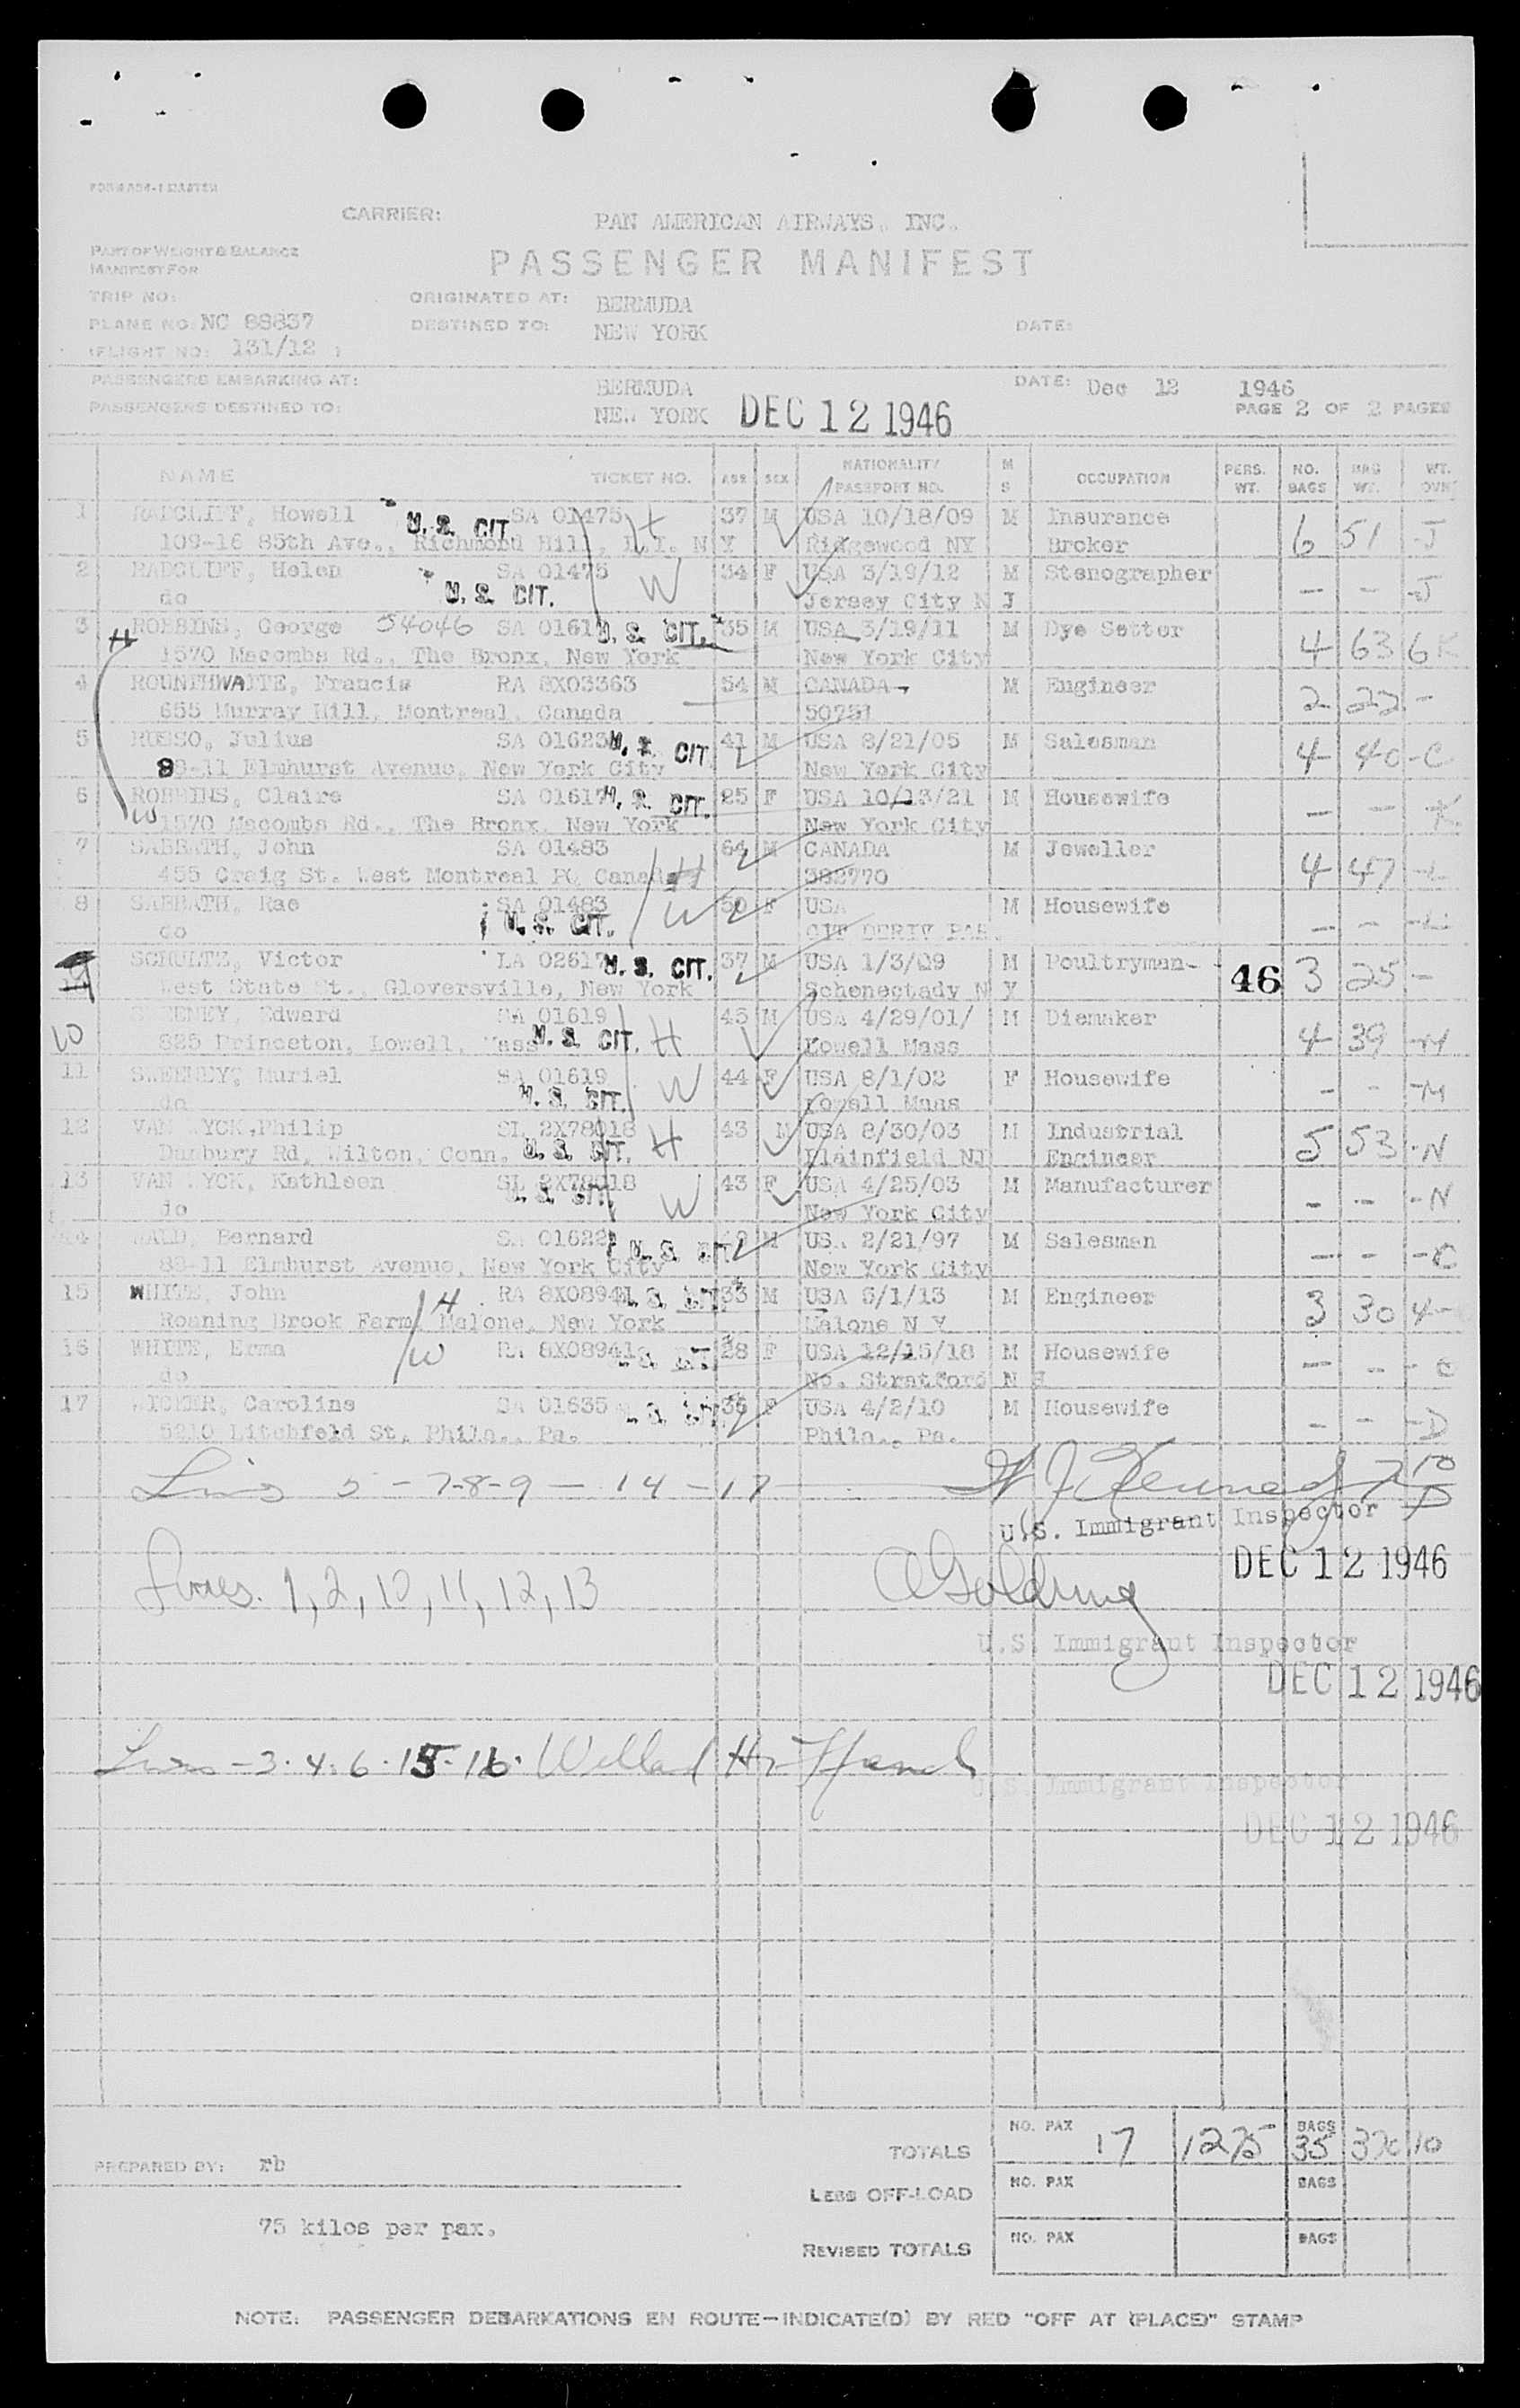 CARRIER: PAN AMERICAN AIRWAYS, INC.
PART OF WEIGHT & BALANCE
MANIFEST FOR
PASSENGER MANIFEST
TRIP NO: ORIGINATED AT: BERMUDA
PLANE NO: NC 88837 DESTINED TO: NEW YORK DATE:
(FLIGHT NO: 131/12 )
PASSENGERS EMBARKING AT: BERMUDA DATE: Dec 12 1946
PASSENGERS DESTINED TO: NEW YORK DEC 12 1946 PAGE 2 OF 2 PAGES
NAME TICKET NO. AGE SEX NATIONALITY PASSPORT NO. M S OCCUPATION PERS. WT. NO. BAGS BAG WT. WT. OVR
1 RADCLIFF, Howell U.S. CIT. SA 01475 H 37 M USA 10/18/09 M Insurance 6 51 -J
109-16 85th Ave., Richmond Hill, L.I. N Y Ridgewood NY Broker
2 RADCLIFF, Helen SA 01475 W 34 F USA 3/19/12 M Stenographer - - -J
do U.S. CIT. Jersey City N J
3 H ROBBINS, George 54046 SA 01617 U.S. CIT. 35 M USA 3/19/11 M Dye Setter 4 63 6 K
1570 Macombs Rd., The Bronx, New York New York City
4 ROUNTHWAITE, Francis RA 8X03363 54 M CANADA M Engineer 2 22 -
655 Murray Hill, Montreal, Canada 50751
5 RUSSO, Julius SA 01623 U.S. CIT. 41 M USA 8/21/05 M Salesman 4 40 -C
89-11 Elmhurst Avenue, New York City New York City
6 ROBBINS, Claire SA 01617 U.S. CIT. 25 F USA 10/13/21 M Housewife - - -K
W 1570 Macombs Rd., The Bronx, New York New York City
7 SABBATH, John SA 01483 64 M CANADA M Jeweller 4 47 -L
455 Craig St. West Montreal PQ Canada H 382770
8 SABBATH, Rae SA 01483 W 50 F USA M Housewife - - -L
do U.S. CIT. CIT DERIV PAR.
9 SCHULTZ, Victor LA 02617 U.S. CIT. 37 M USA 1/3/09 M Poultryman 46 3 25 -
West State St., Gloversville, New York Schenectady N Y
10 SWEENEY, Edward SA 01619 45 M USA 4/29/01/ M Diemaker 4 39 -M
825 Princeton, Lowell, Mass U.S. CIT. H Lowell Mass
11 SWEENEY, Muriel SA 01619 W 44 F USA 8/1/02 F Housewife - - -M
do U.S. CIT. Lowell Mass
12 VAN WYCK, Philip SL 2X78018 H 43 M USA 8/30/03 M Industrial 5 53 -N
Danbury Rd, Wilton, Conn. U.S. CIT. Plainfield NJ Engineer
13 VAN WYCK, Kathleen SL 2X78018 43 F USA 4/25/03 M Manufacturer - - -N
do U.S. CIT. W New York City
14 WALD, Bernard SA 01622 U.S. CIT. M USA 2/21/97 M Salesman - - -C
89-11 Elmhurst Avenue, New York City New York City
15 WHITE, John H RA 8X08941 U.S. CIT. 33 M USA 6/1/13 M Engineer 3 30 4 -
Roaning Brook Farm, Malone, New York Malone N Y
16 WHITE, Erma W RA 8X08941 U.S. CIT. 28 F USA 12/15/18 M Housewife - - - C
do No. Stratford N H
17 WICKER, Caroline SA 01635 U.S. CIT. 36 F USA 4/2/10 M Housewife - - -D
5210 Litchfeld St, Phila., Pa. Phila., Pa.
Lines 5 - 7-8-9 - 14 - 17
U.S. Immigrant Inspector
DEC 12 1946
Lines. 1, 2, 10, 11, 12, 13 Golding
U.S. Immigrant Inspector
DEC 12 1946
Lines - 3. 4. 6. 15. 16.
U.S. Immigrant Inspector
DEC 12 1946
TOTALS NO. PAX 17 1275 BAGS 35 370 10
PREPARED BY: rb
LESS OFF-LOAD NO. PAX BAGS
75 kilos per pax.
REVISED TOTALS NO. PAX BAGS
NOTE: PASSENGER DEBARKATIONS EN ROUTE-INDICATE(D) BY RED "OFF AT (PLACE)" STAMP